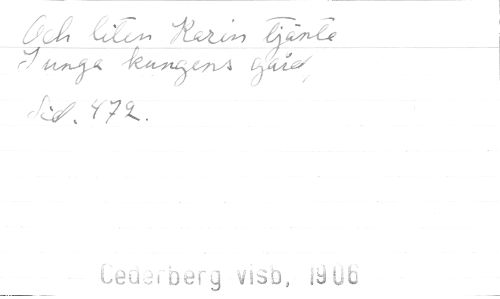 Och liten Karin tjänte
I unga kungens gård,
Sid. 472.
Cederberg visb, 1906